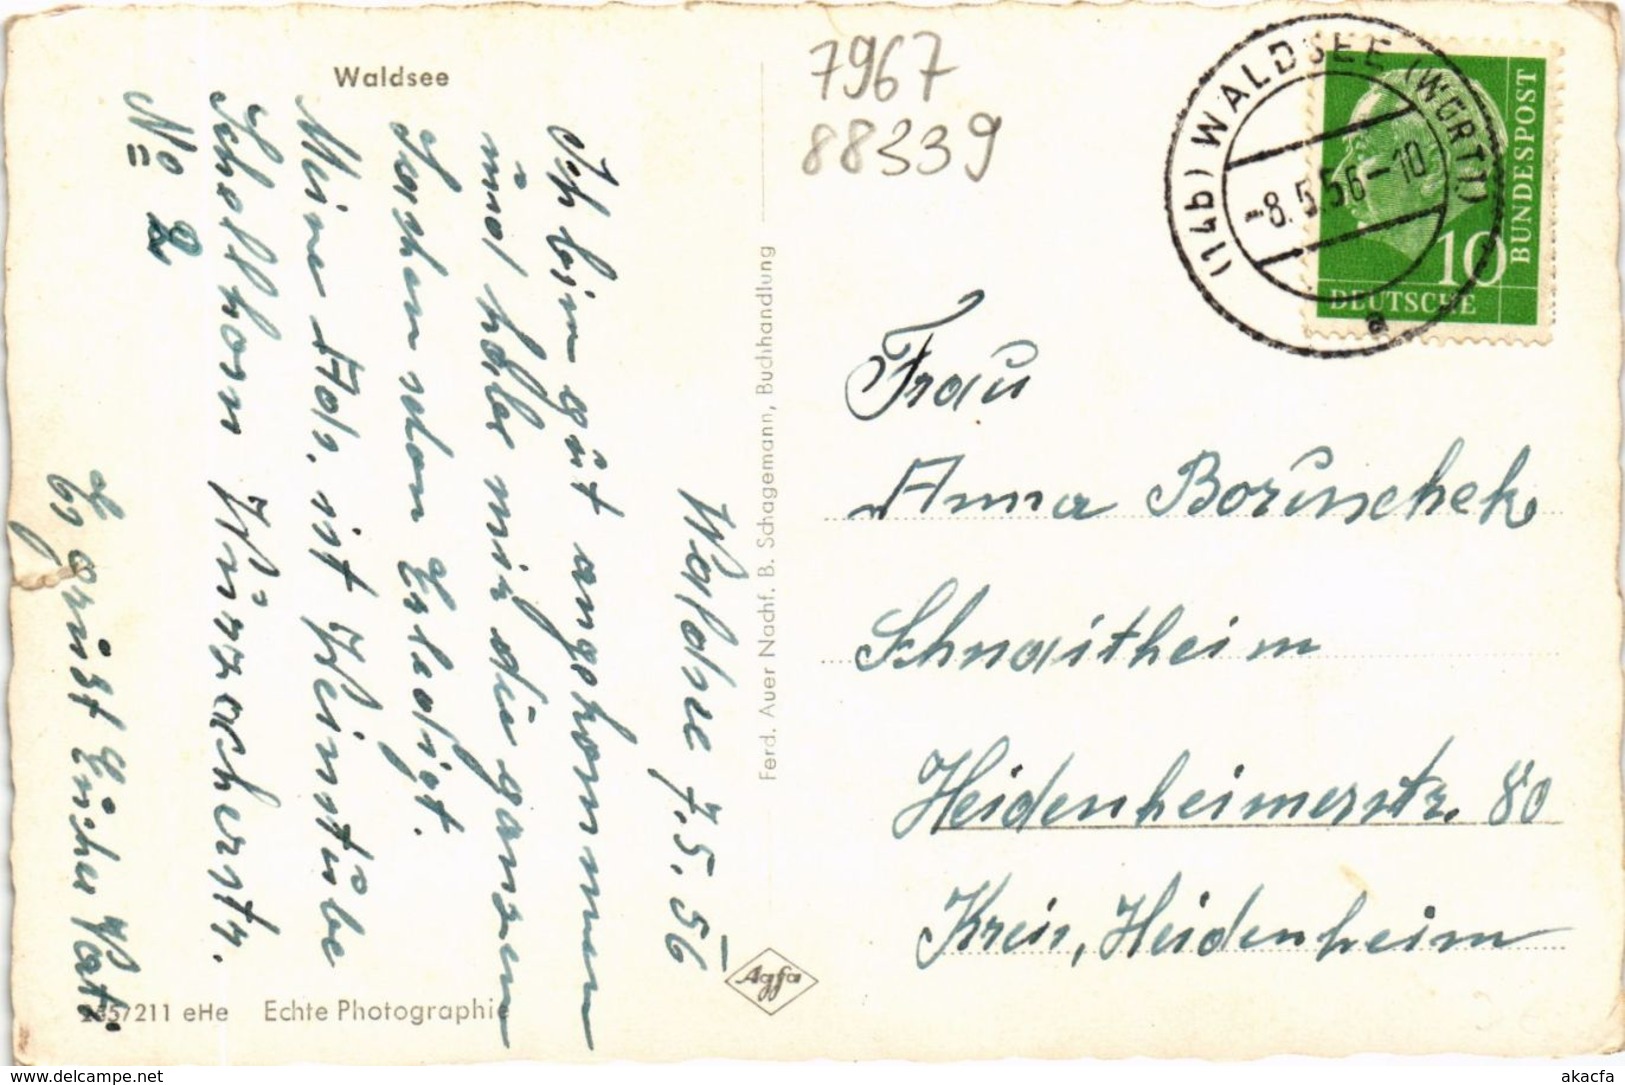 Waldsee
7967
88339
(14b) WALDSEE (WÜRTT)
-8.5.56-10
a
10
DEUTSCHE
BUNDESPOST
Waldsee 7.5.56
Ich bin gut angekommen
und habe mir die ganzen
Sachen schon Erledigt.
Meine Ads. ist Weinstube
Schellhorn Wurzacherstr.
No 2
Es grüßt Euch Vati.
Frau
Anna Boruschek
Schnaitheim
Heidenheimerstr. 80
Kreis, Heidenheim
Ferd. Auer Nachf. B. Schagemann, Buchhandlung
Agfa
211 eHe Echte Photographie
www.delcampe.net
akacfa